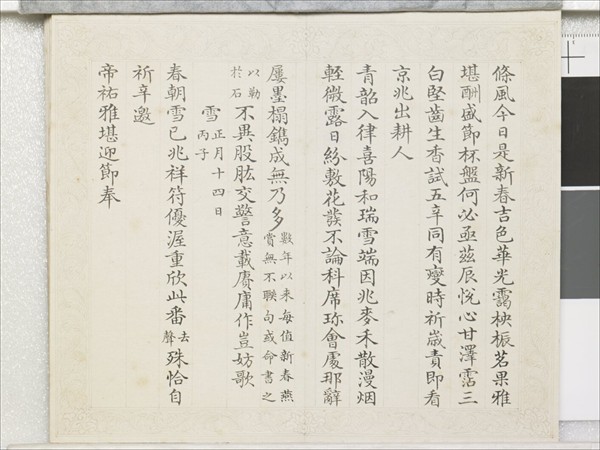 條風今日是新春吉色華光靄柍桭茗果雅
堪酬盛節杯盤何必亟茲辰悅心甘澤霑三
白堅齒生香試五辛同有變時祈歲責即看
京兆出耕人
青韶入律喜陽和瑞雪端因兆麥禾散漫烟
輕微露日紛敷花發不論科席珍會處那辭
屢墨榻鐫成無乃多數年以來每值新春燕賞無不聯句或命書之
以勒於石不異股肱交警意載賡庸作豈妨歌
雪正月十四日丙子
春朝雪已兆祥符優渥重欣此番去聲殊恰自
祈辛邀
帝祐雅堪迎節奉